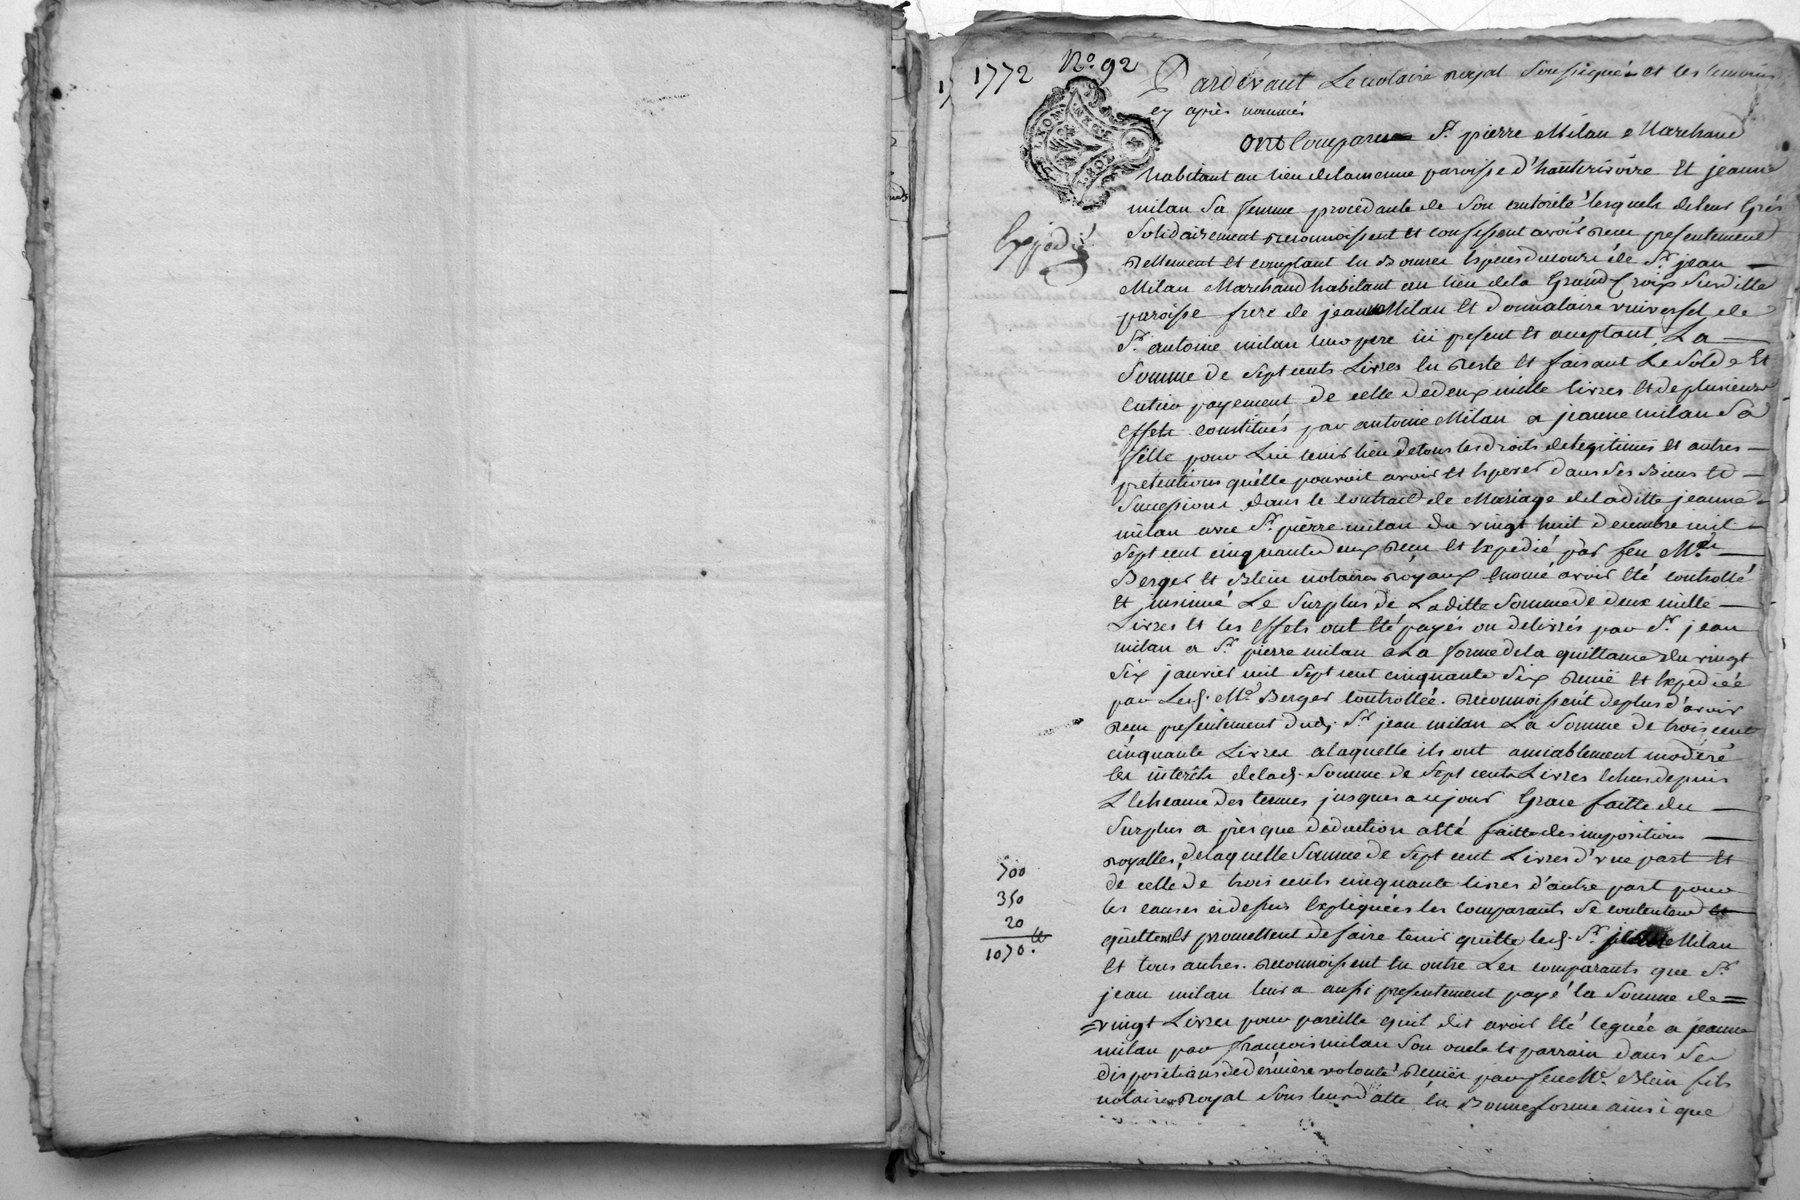 1772 No. 92
Pardevant Le notaire royal Soussigné et les temoins
cy après nommés
ont Comparu Sr. pierre Milan Marchand
habitant au lieu de paroisse d'hauterivoire Et jeanne
milan Sa femme procedante de Son autorité lesquels de leur Gré
Solidairement reconnoissent et confessent avoir reçu presentement
reellement et comptant En Bonnes Espèces du cours de Sr. jean
Milan Marchand habitant au lieu de la Grand Croix Susditte
paroisse frere de jeanne Milan Et donnataire universel de
Sr. antoine milan leur pere ici present et aceptant La
Somme de Sept cents Livres En reste Et faisant Le Solde Et
Entier payement de celle de deux mille livres Et de plusieurs
Effets constitués par antoine Milan a jeanne milan Sa
fille pour Lui tenir lieu de tous les droits de legitimes Et autres
pretentions qu'elle pouvoit avoir Et Esperer dans Ses Biens Et
Successions dans le contract de Mariage de laditte jeanne
milan avec Sr. pierre milan du vingt huit decembre mil
Sept cent cinquante deux reçu Et Expedié par feu Mes.
Berger Et Blein notaires royaux Enoncé avoir Eté controllé
Et insinué Le Surplus de Laditte Somme de deux mille
Livres Et les Effets ont Eté payés ou delivrés par Sr. jean
milan a Sr. pierre milan a La forme de la quittance du vingt
Six janvier mil Sept cent cinquante Six reçue Et Expediée
par Led. Me. Berger Controllée. reconnoissent de plus d'avoir
reçu presentement dud. Sr. jean milan La Somme de trois cent
cinquante Livres a laquelle ils ont amiablement modéré
les interêts de lad. Somme de Sept cents Livres Echus depuis
L'Echeance des termes jusques aujourd Grace faitte du
Surplus a près que deduction a Eté faitte des impositions
royalles, de laquelle Somme de Sept cent Livres d'une part Et
de celle de trois cents cinquante livres d'autre part pour
les causes cidessus Expliquées les comparants Se contentent et
quittent Et promettent de faire tenir quitte led. Sr. jean Milan
Et tous autres. reconnoissent En outre Les comparants que Sr.
jean milan leur a aussi presentement payé la Somme de =
= vingt Livres pour pareille quil dit avoir Eté leguée a jeanne
milan par françois milan Son oncle Et parrain dans Ses
dispositions de dernière volonté recües par feu Me. Blein fils
notaire royal Sous leur datte En Bonne forme ainsi que
Expedié
700
350
20
1070.